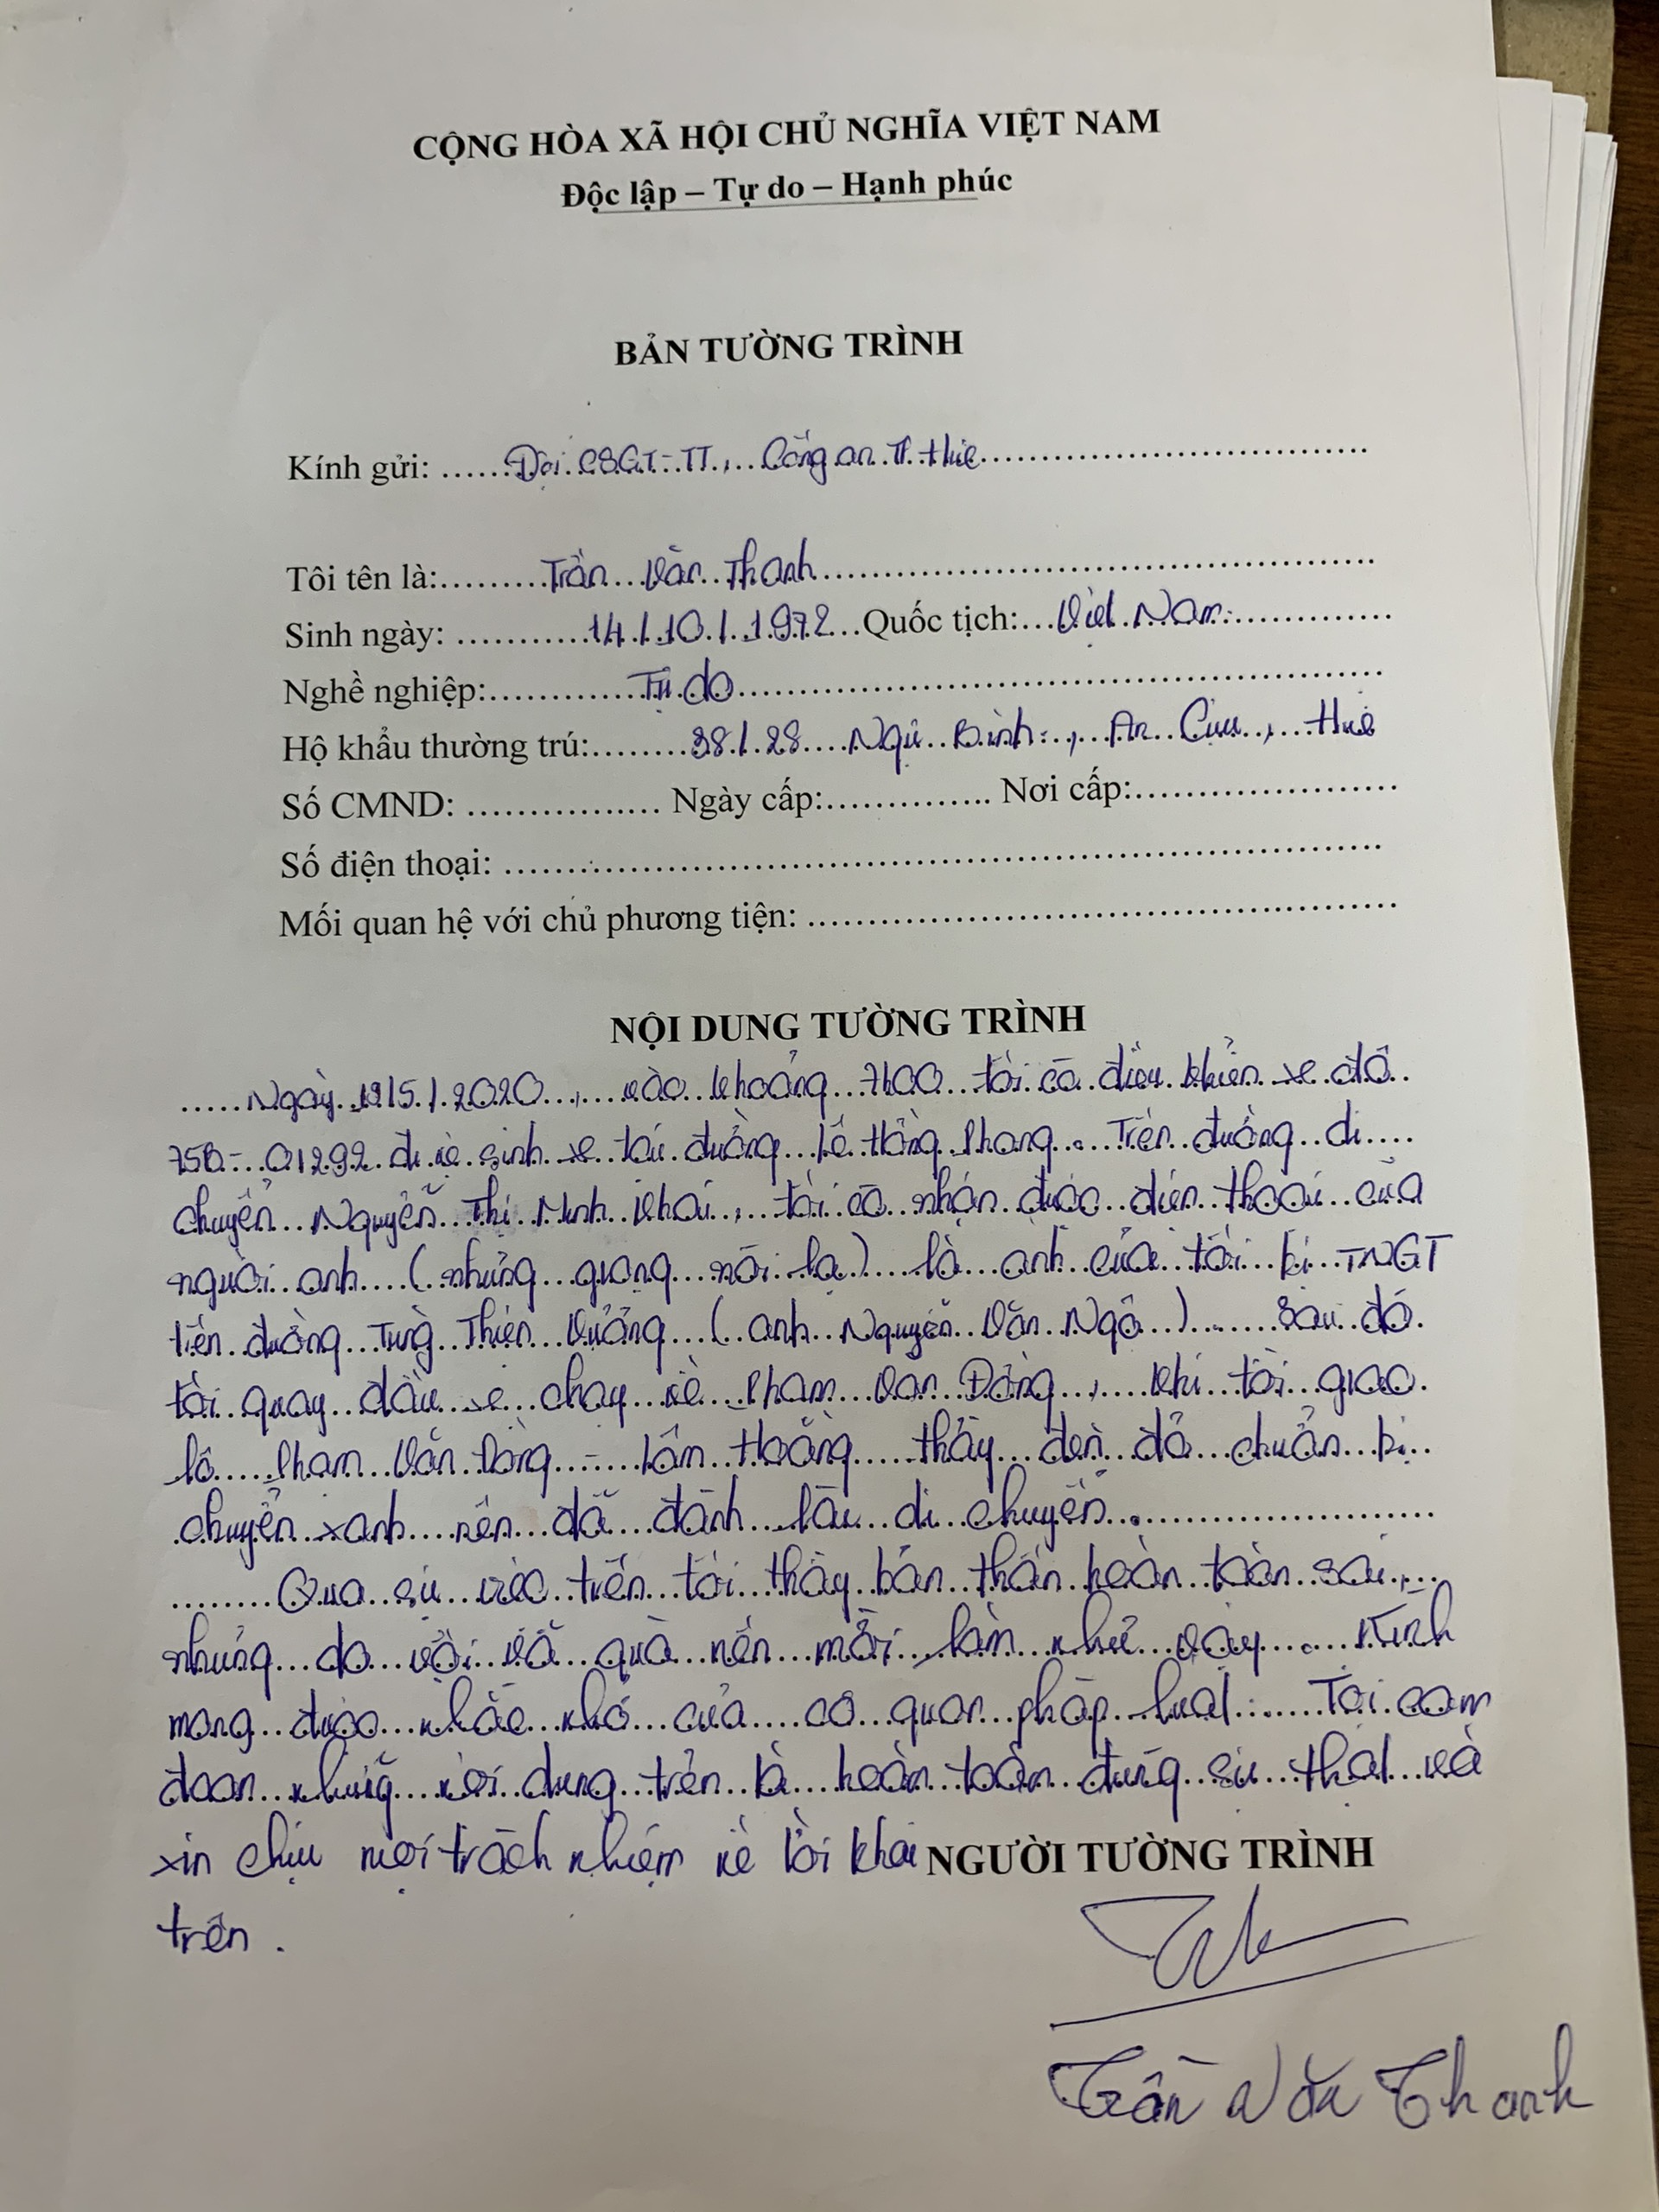 CỘNG HÒA XÃ HỘI CHỦ NGHĨA VIỆT NAM
Độc lập – Tự do – Hạnh phúc
BẢN TƯỜNG TRÌNH
Kính gửi: Đội CSGT-TT, Công an TP. Huế
Tôi tên là: Trần Văn Thanh
Sinh ngày: 14/10/1972 Quốc tịch: Việt Nam
Nghề nghiệp: Tự do
Hộ khẩu thường trú: 38/28 Ngự Bình, An Cựu, Huế
Số CMND: Ngày cấp: Nơi cấp:
Số điện thoại:
Mối quan hệ với chủ phương tiện:
NỘI DUNG TƯỜNG TRÌNH
Ngày 19/5/2020, vào khoảng 7h00 tôi có điều khiển xe đồ
75B-01292 đi vệ sinh xe tại đường Lê Hồng Phong. Trên đường di
chuyển Nguyễn Thị Minh Khai, tôi có nhận được điện thoại của
người anh (nhưng giọng nói lạ) là anh của tôi bị TNGT
trên đường Tùng Thiện Vương (anh Nguyễn Văn Ngộ). Sau đó
tôi quay đầu xe chạy về Phạm Văn Đồng, khi tới giao
lộ Phạm Văn Đồng - Lâm Hoằng thấy đèn đỏ chuẩn bị
chuyển xanh nên đã đánh lái di chuyển.
Qua sự việc trên tôi thấy bản thân hoàn toàn sai,
nhưng do vội vã quá nên mới làm như vậy. Kính
mong được nhắc nhở của cơ quan pháp luật. Tôi cam
đoan những nội dung trên là hoàn toàn đúng sự thật và
xin chịu mọi trách nhiệm về lời khai
NGƯỜI TƯỜNG TRÌNH
trên.
Trần Văn Thanh